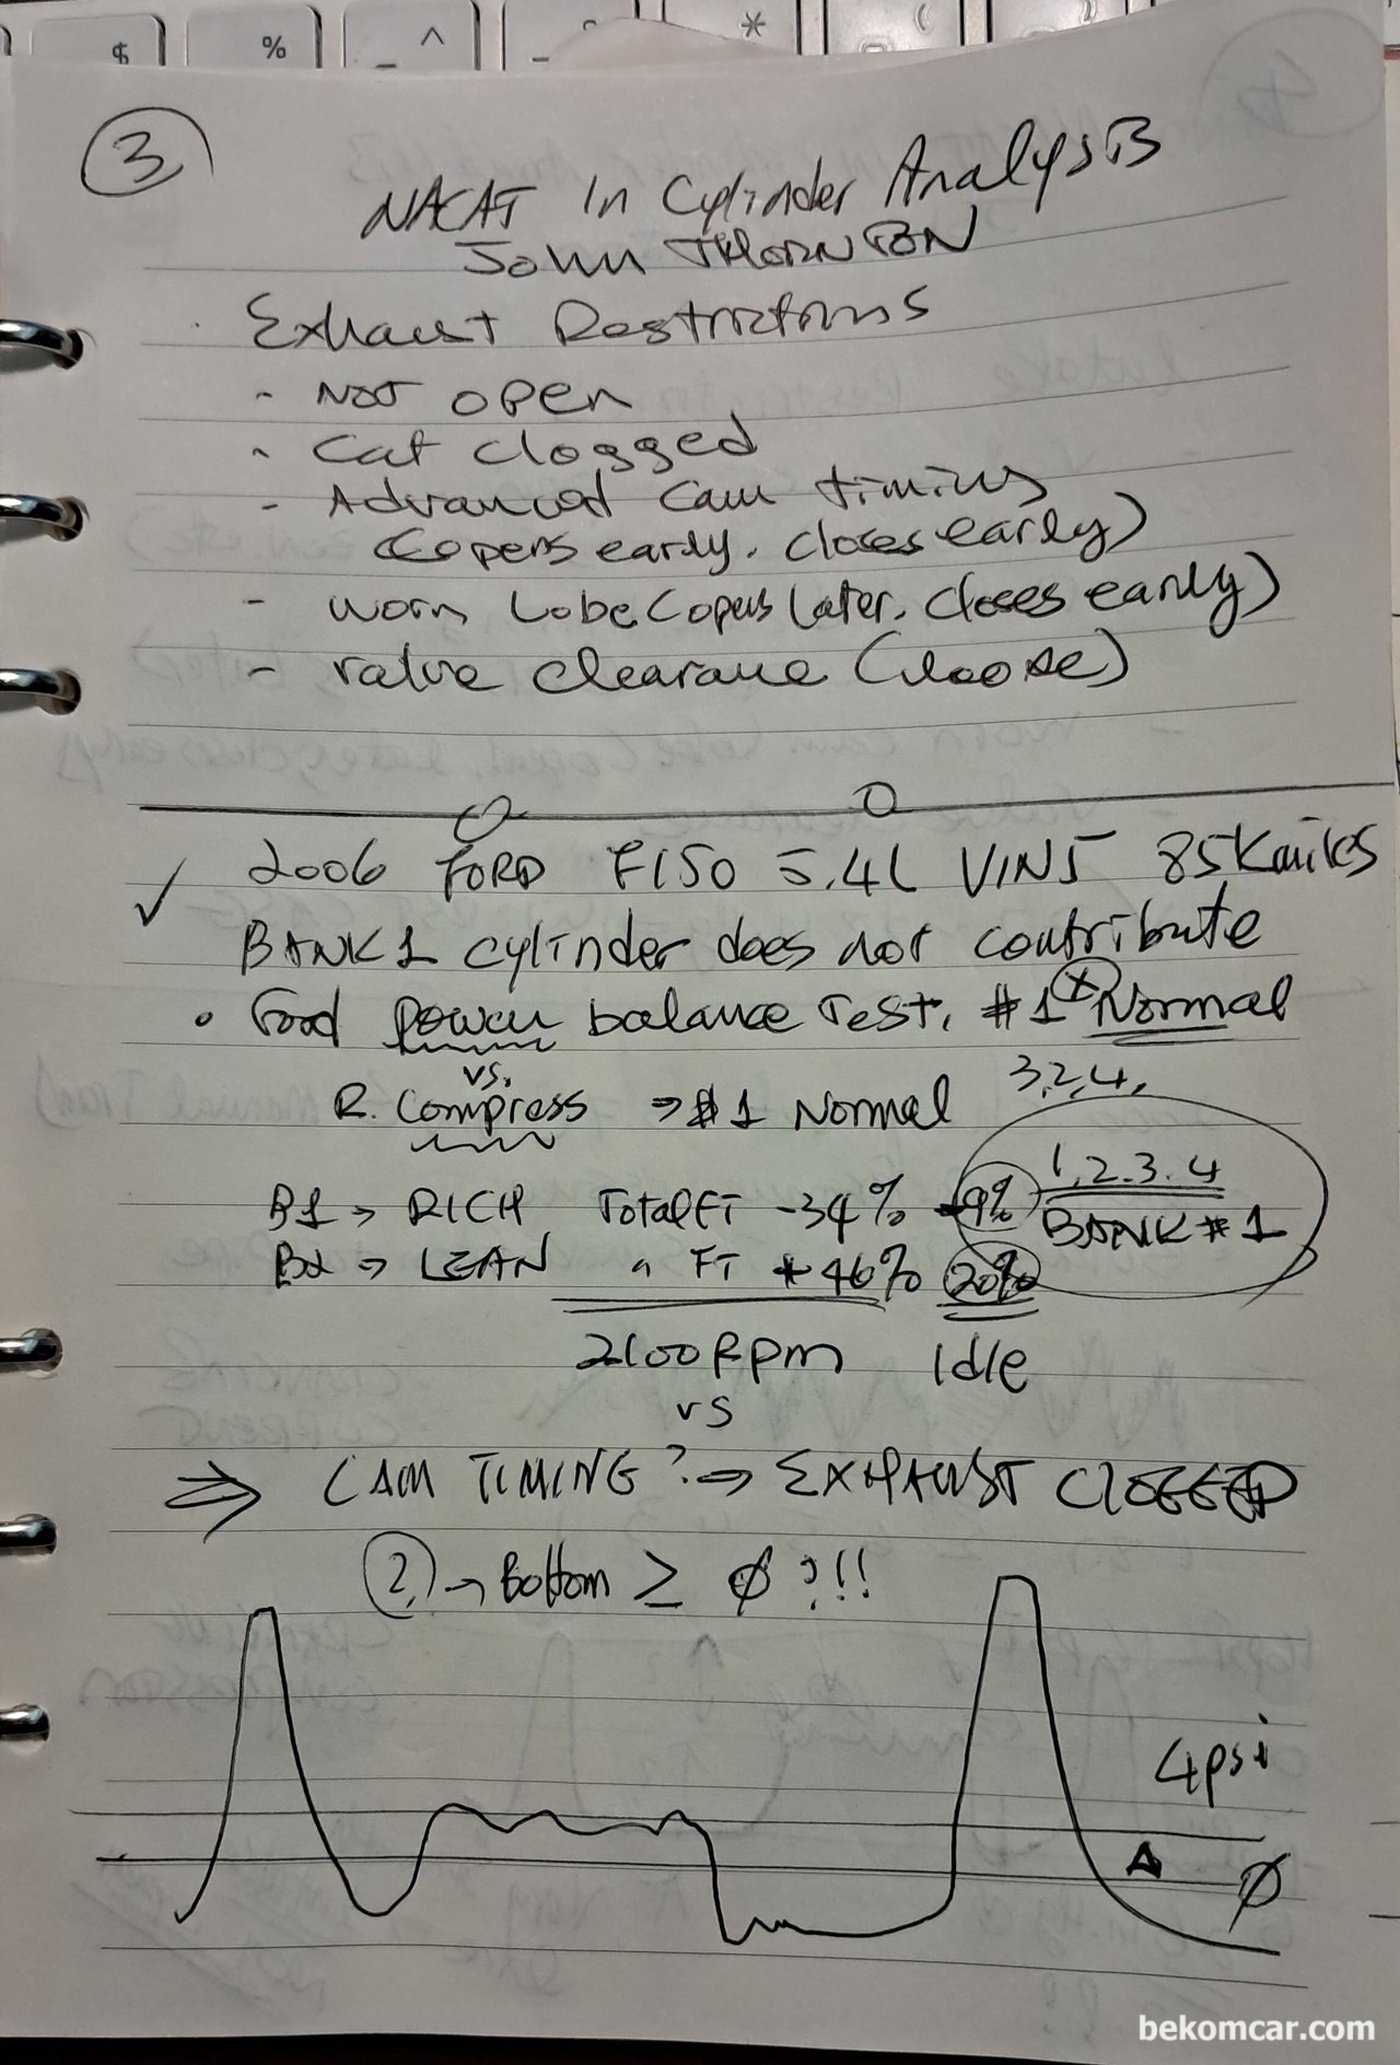 $ % ^ * (
3
NACAT In Cylinder Analysis
John THORNTON
Exhaust Restrictions
- Not open
- Cat clogged
- Advanced Cam timing
(opens early, closes early)
- worn Lobe (opens later, closes early)
- valve clearance (loose)
✓ 2006 FORD F150 5.4L VIN5 85K miles
BANK1 cylinder does not contribute
• Ford power balance Test, #1 Normal
vs. 3,2,4,
R. Compress ⇒ #1 Normal
1,2,3,4
B1 → RICH Total FT -34% -9% BANK #1
B2 → LEAN " FT +46% 20%
2100Rpm Idle
vs
⇒ CAM TIMING? ⇒ EXHAUST CLOGGED
2, → Bottom ≥ ∅ ?!!
4psi
∅
bekomcar.com